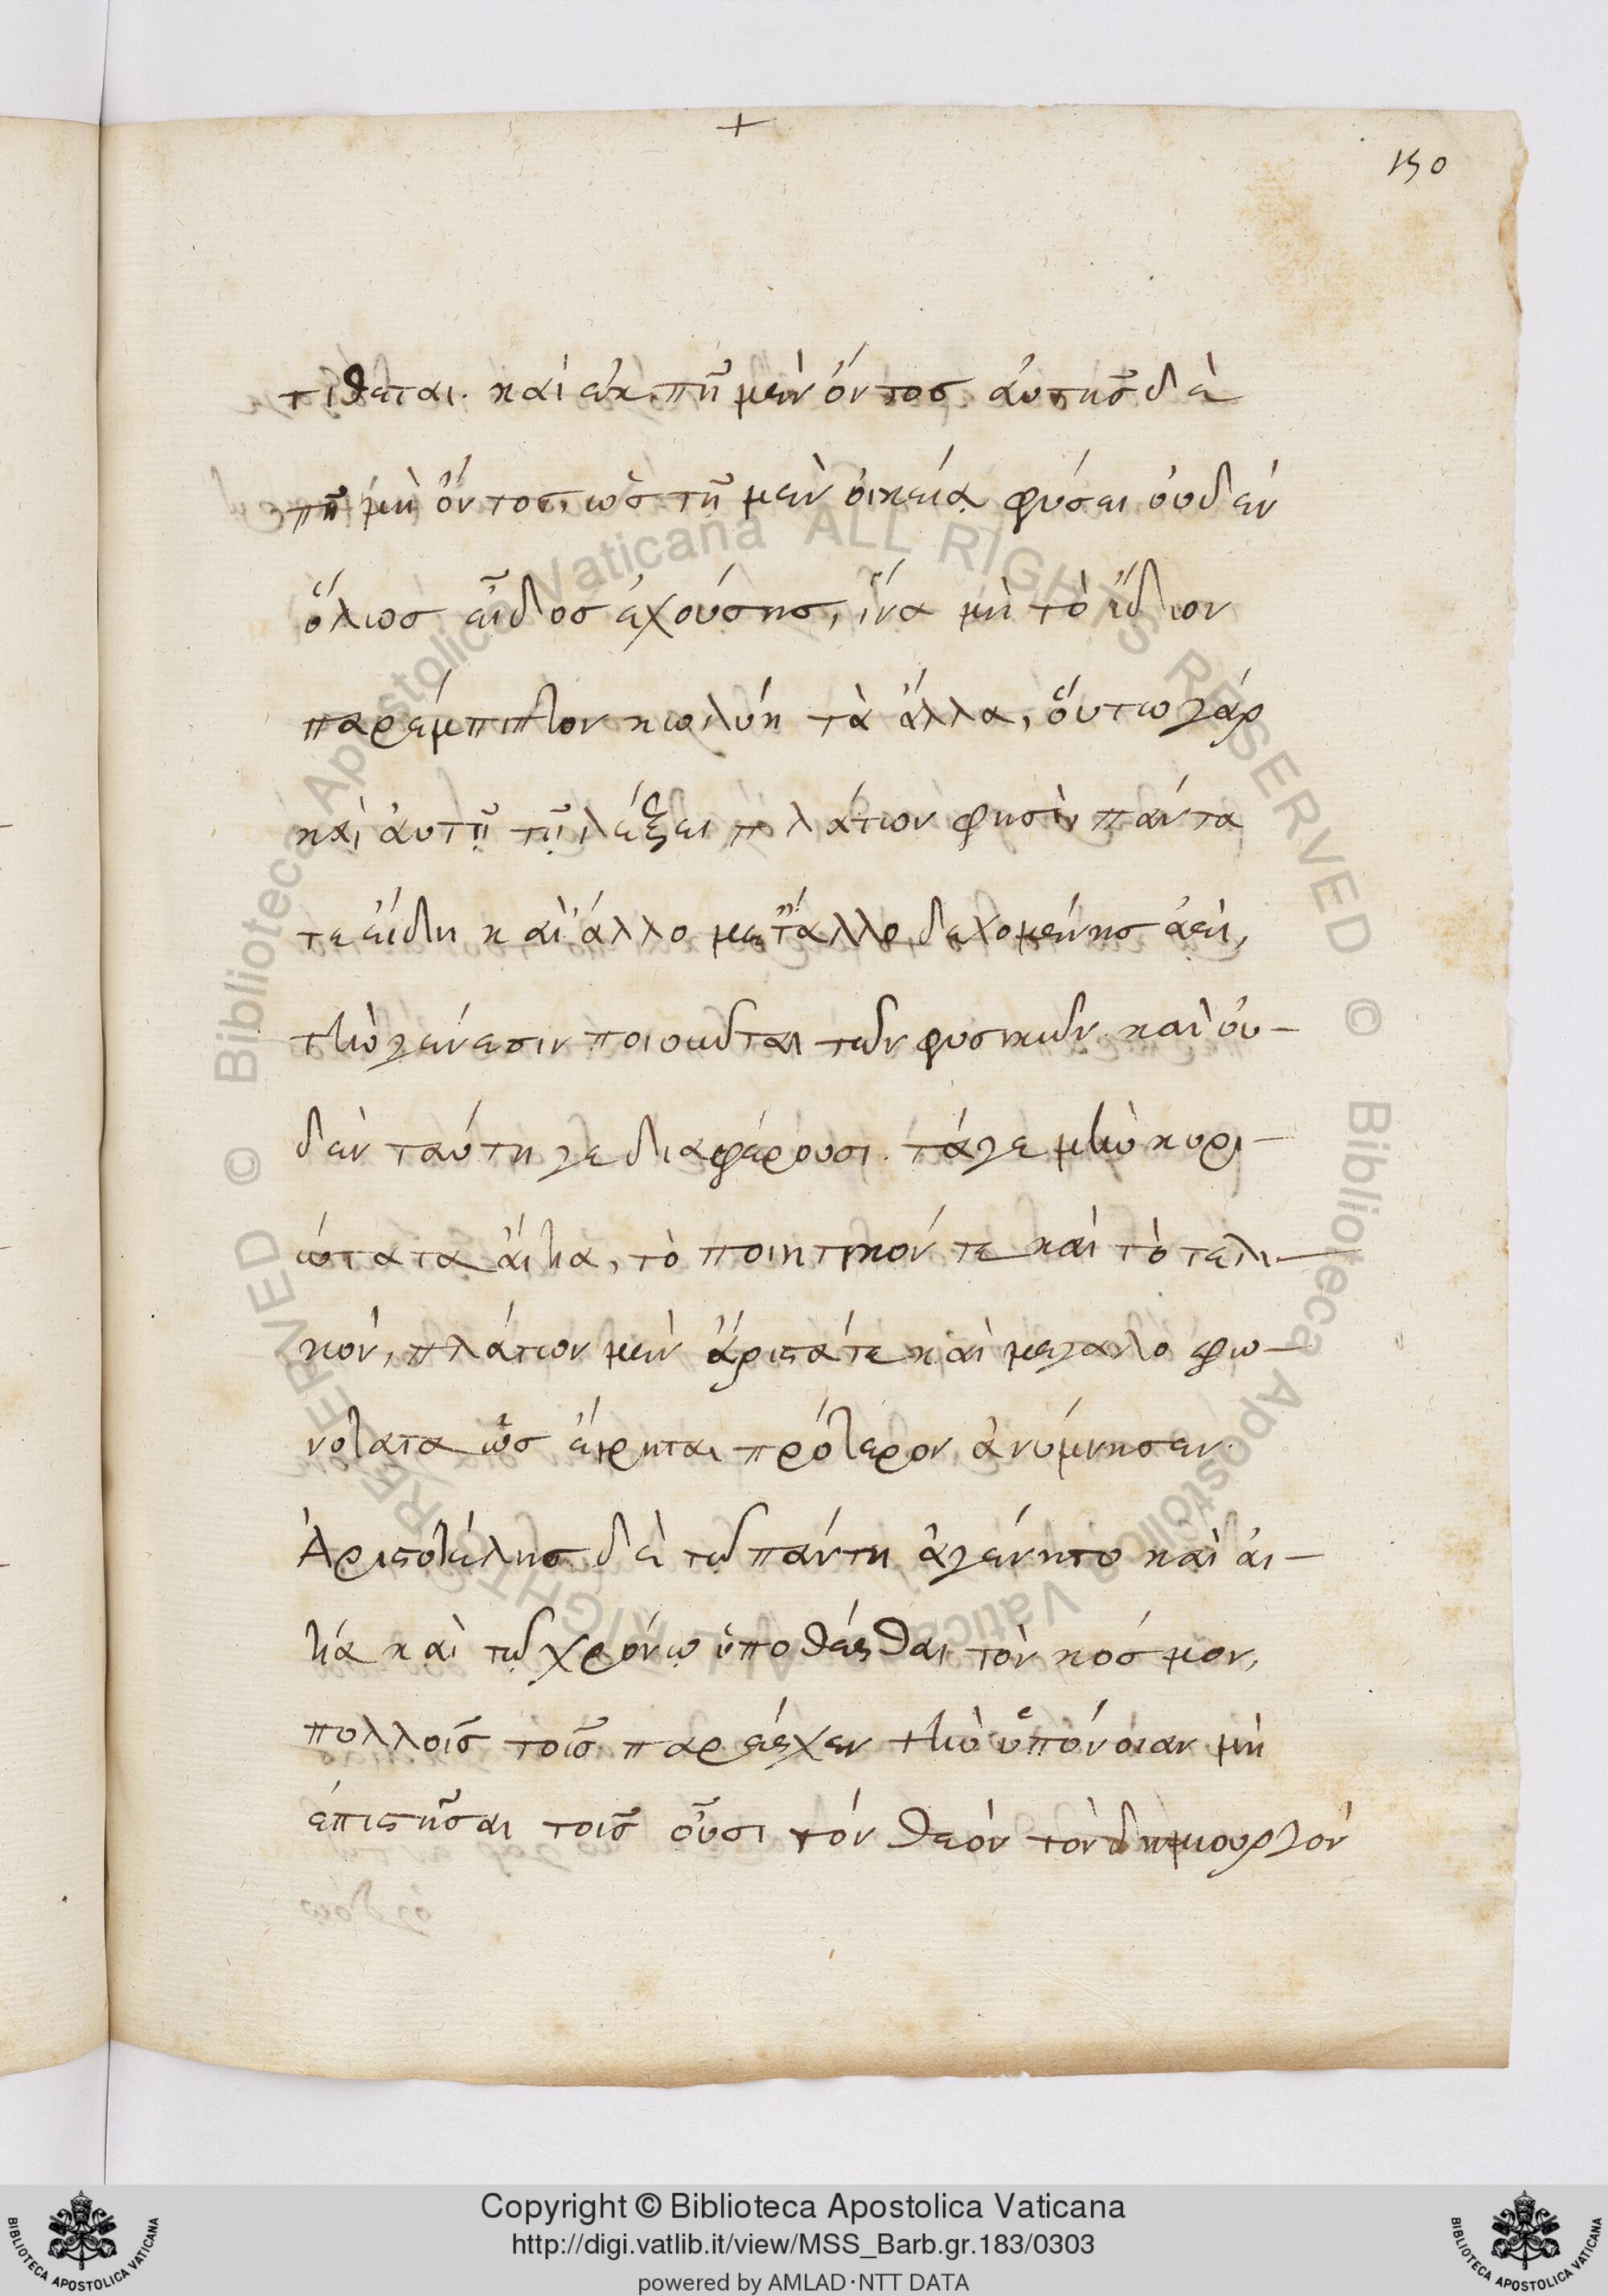 +
150
τιθεται. καὶ ἐκ πῆ μὲν ὄντος αὐτῆς δὲ
πῆ μὴ ὄντος, ὡς τῇ μὲν οἰκείᾳ φύσει οὐδὲν
ὅλως εἶδος ἐχούσης, ἵνα μὴ τὸ ἴδιον
παρέμπιπτον κωλύη τὰ ἄλλα, ὅυτω γάρ
καὶ ἀυτῇ τῇ λέξει πλάτων φησὶν πάντα
τε είδη καὶ ἄλλο μετ ἄλλο δεχομένης ἀεὶ,
τὴν γένεσιν ποιοῦνται τῶν φυσικῶν. καὶ οὐ-
δὲν ταύτη γε διαφέρουσι. τάγε μὴν κυρι-
ώτατα ἄιτια, τὸ ποιητικόν τε καὶ τὸ τελι-
κόν, πλάτων μὲν ἄριστάτε καὶ μεγαλοφω-
νότατα ὡς εἴρηται πρότερον ἀνύμνησεν.
Ἀριστοτέλης δὲ τῶ πάντη ἀγένητο καὶ ἀι-
τία καὶ τῷ χρόνῳ ὑποθέσθαι τὸν κόσμον,
πολλοῖς τοῖς παρέσχεν τὴν ὑπόνοιαν μὴ
ἐπιστῆσαι τοῖς οὖσι τὸν θεὸν τὸν δημιουργὸν
Copyright © Biblioteca Apostolica Vaticana
http://digi.vatlib.it/view/MSS_Barb.gr.183/0303
powered by AMLAD·NTT DATA